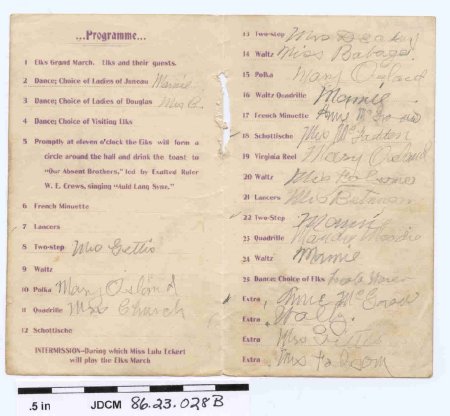 ...Programme...
1 Elks Grand March. Elks and their guests.
2 Dance; Choice of Ladies of Juneau Mamie
3 Dance; Choice of Ladies of Douglas Mrs. C.
4 Dance; Choice of Visiting Elks
5 Promptly at eleven o'clock the Elks will form a
circle around the hall and drink the toast to
"Our Absent Brothers," led by Exalted Ruler
W. E. Crews, singing "Auld Lang Syne."
6 French Minuette
7 Lancers
8 Two-step Mrs Gettis
9 Waltz
10 Polka Mary Osland
11 Quadrille Mrs Church
12 Schottische
INTERMISSION—During which Miss Lulu Eckert
will play the Elks March
13 Two-step Mrs
14 Waltz Miss
15 Polka Mary Osland
16 Waltz Quadrille Mamie
17 French Minuette
18 Schottische Miss McFadden
19 Virginia Reel Mary Osland
20 Waltz Miss
21 Lancers
22 Two-Step Mamie
23 Quadrille
24 Waltz Minnie
25 Dance: Choice of Elks
Extra
Extra
Extra Miss
Extra Mrs
.5 in JDCM 86.23.028B